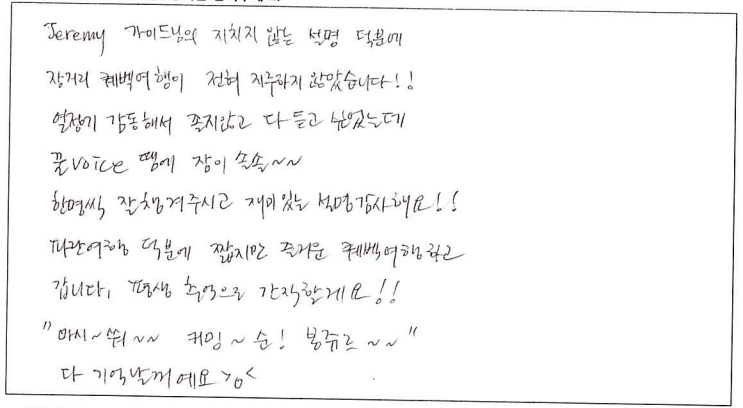 Jeremy 가이드님의 지치지 않는 설명 덕분에
장거리 퀘백여행이 전혀 지루하지 않았습니다!!
열정에 감동해서 졸지않고 다 듣고 싶었는데
꿀voice 땜에 잠이 솔솔~~
한명씩 잘 챙겨주시고 재미있는 설명감사해요!!
파란여행 덕분에 짧지만 즐거운 퀘백여행하고
갑니다, 평생 추억으로 간직할게요!!
"마시~쒀~~ 커밍~순! 봉쥬르~~"
다 기억날꺼에요 >o<